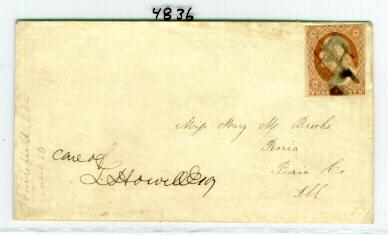 4836
THREE CENTS
Miss Mary M Brooks
Peoria
Peoria Co
Ill
care of
L. Howell Esq